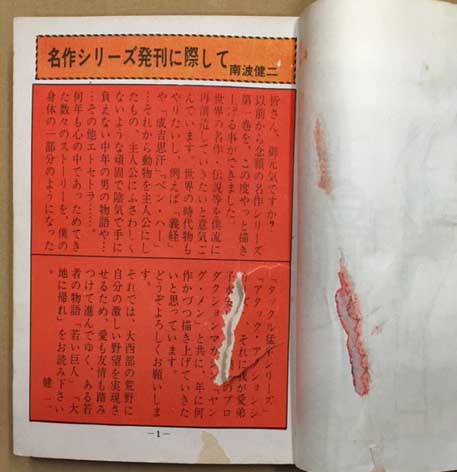 名作シリーズ発刊に際して
南波健二
皆さん、御元気ですか？
以前から念願の名作シリーズ
第一巻を、この度やっと描き
上げる事ができました。
世界の名作、伝説等を僕流に
再創造していきたいと意気ご
んでいます。世界の時代物も
やりたいし、例えば「義経」
や「成吉思汗」「ベン・ハー」
…それから動物を主人公にし
たもの、主人公にふさわしく
ないような頑固で陰気で手に
負えない中年の男の物語や…
…その他エトセトラ……。
何年も心の中であっためてき
た数々のストーリーを、僕の
身体の一部分のようになった
「タックル猛牛シリーズ」
「アタック・アクションシ
それに我が愛弟
のプロ
タクション
ヤン
グ・メン」と共に、年に何
作かづつ描き上げていきた
いと思っています。
どうぞよろしくお願いしま
す。
それでは、大西部の荒野に
自分の激しい野望を実現さ
せるため、愛も友情も踏み
つけて進んでゆく、ある若
者の物語「若い巨人」「大
地に帰れ」をお読み下さい
健二
—1—